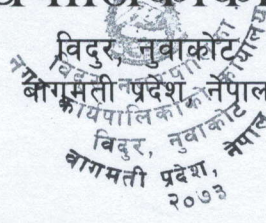 विदुर, नुवाकोट
बागमती प्रदेश, नेपाल
नगर कार्यपालिकाको कार्यालय
विदुर, नुवाकोट
बागमती प्रदेश, नेपाल
२०७३